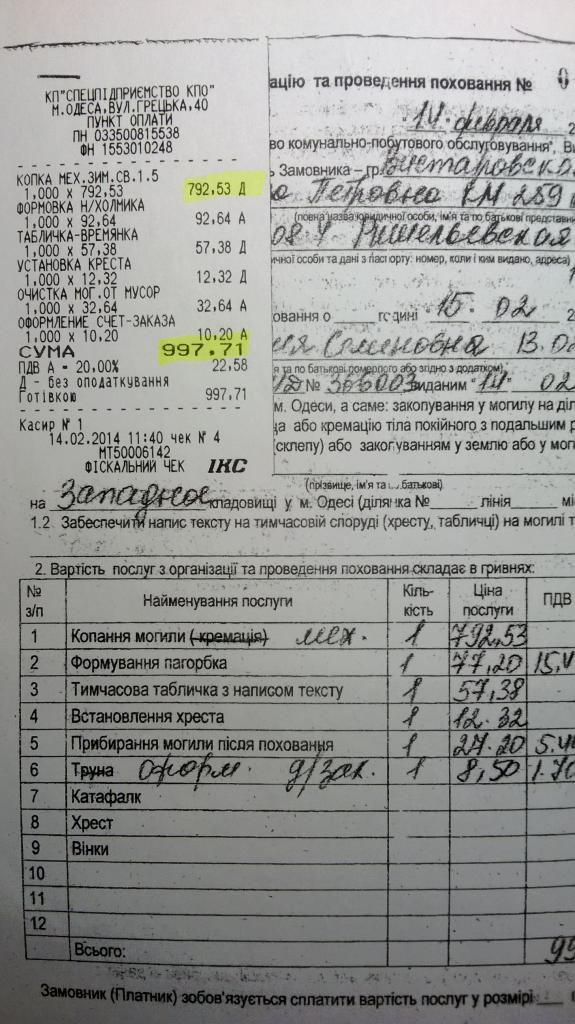 КП"СПЕЦПІДПРИЄМСТВО КПО"
М.ОДЕСА,ВУЛ.ГРЕЦЬКА,40
ПУНКТ ОПЛАТИ
ПН 033500815538
ФН 1553010248
КОПКА МЕХ.ЗИМ.СВ.1.5
1,000 x 792,53 792,53 Д
ФОРМОВКА Н/ХОЛМИКА
1,000 x 92,64 92,64 А
ТАБЛИЧКА-ВРЕМЯНКА
1,000 x 57,38 57,38 Д
УСТАНОВКА КРЕСТА
1,000 x 12,32 12,32 Д
ОЧИСТКА МОГ.ОТ МУСОР
1,000 x 32,64 32,64 А
ОФОРМЛЕНИЕ СЧЕТ-ЗАКАЗА
1,000 x 10,20 10,20 А
СУМА 997,71
ПДВ А = 20,00% 22,58
Д - без оподаткування
Готівкою 997,71
Касир № 1
14.02.2014 11:40 чек № 4
МТ50006142
ФІСКАЛЬНИЙ ЧЕК ІКС
ацію та проведення поховання № 0
14 февраля 2
во комунально-побутового обслуговування", Ви
Замовника – гр.
Петровна КМ 259
(повна назва юридичної особи, ім'я та по батькові представни
Ришельевская
ичної особи та дані з паспорту: номер, коли і ким видано, адреса)
ховання о годині 15. 02 2
Семиновна 13.02
я та по батькові померлого або згідно з додатком)
№ 306003 виданим "14" 02
м. Одеси, а саме: закопування у могилу на діл
або кремацію тіла покійного з подальшим р
(склепу) або закопуванням у землю або у мог
(прізвище, ім'я та по батькові)
на Западное кладовищі у м. Одесі (ділянка № лінія мі
1.2 Забеспечити напис тексту на тимчасовій споруді (хресту, табличці) на могилі т
2. Вартість послуг з організації та проведення поховання складає в гривнях:
№ з/п Найменування послуги Кіль-кість Ціна послуги ПДВ
1 Копання могили (кремація) мех. 1 792,53
2 Формування пагорбка 1 77,20 15,4
3 Тимчасова табличка з написом тексту 1 57,38
4 Встановлення хреста 1 12.32
5 Прибирання могили після поховання 1 27.20 5.4
6 Труна оформ. д/зак. 1 8,50 1.70
7 Катафалк
8 Хрест
9 Вінки
10
11
12
Всього: 99
Замовник (Платник) зобов'язується сплатити вартість послуг у розмірі